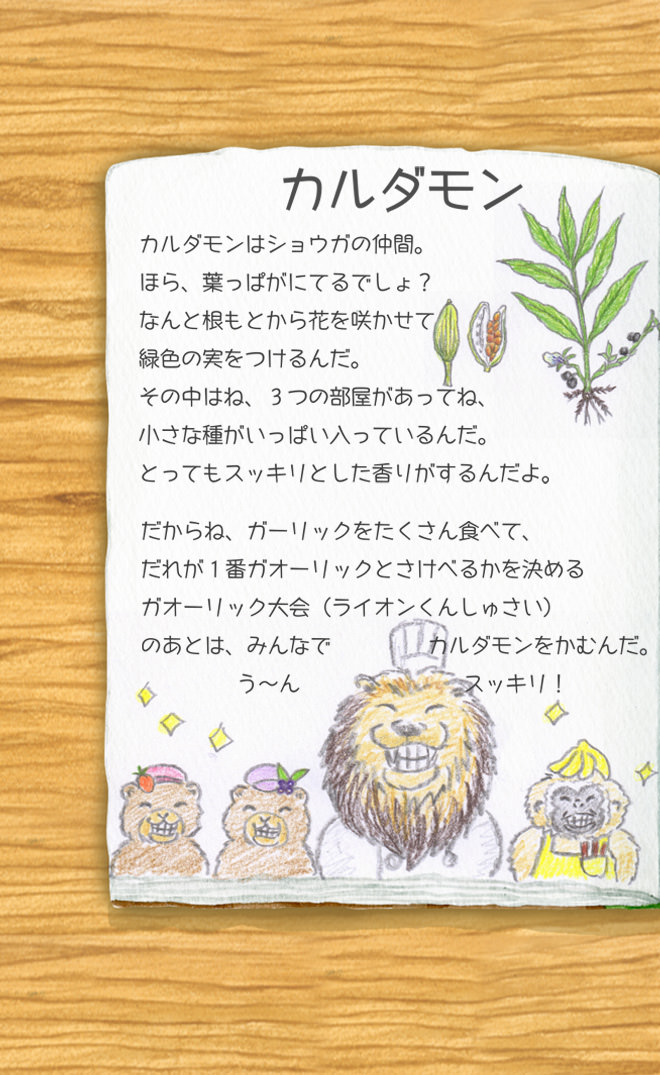 カルダモン
カルダモンはショウガの仲間。
ほら、葉っぱがにてるでしょ？
なんと根もとから花を咲かせて
緑色の実をつけるんだ。
その中はね、３つの部屋があってね、
小さな種がいっぱい入っているんだ。
とってもスッキリとした香りがするんだよ。
だからね、ガーリックをたくさん食べて、
だれが１番ガオーリックとさけべるかを決める
ガオーリック大会（ライオンくんしゅさい）
のあとは、みんなで カルダモンをかむんだ。
う～ん スッキリ！